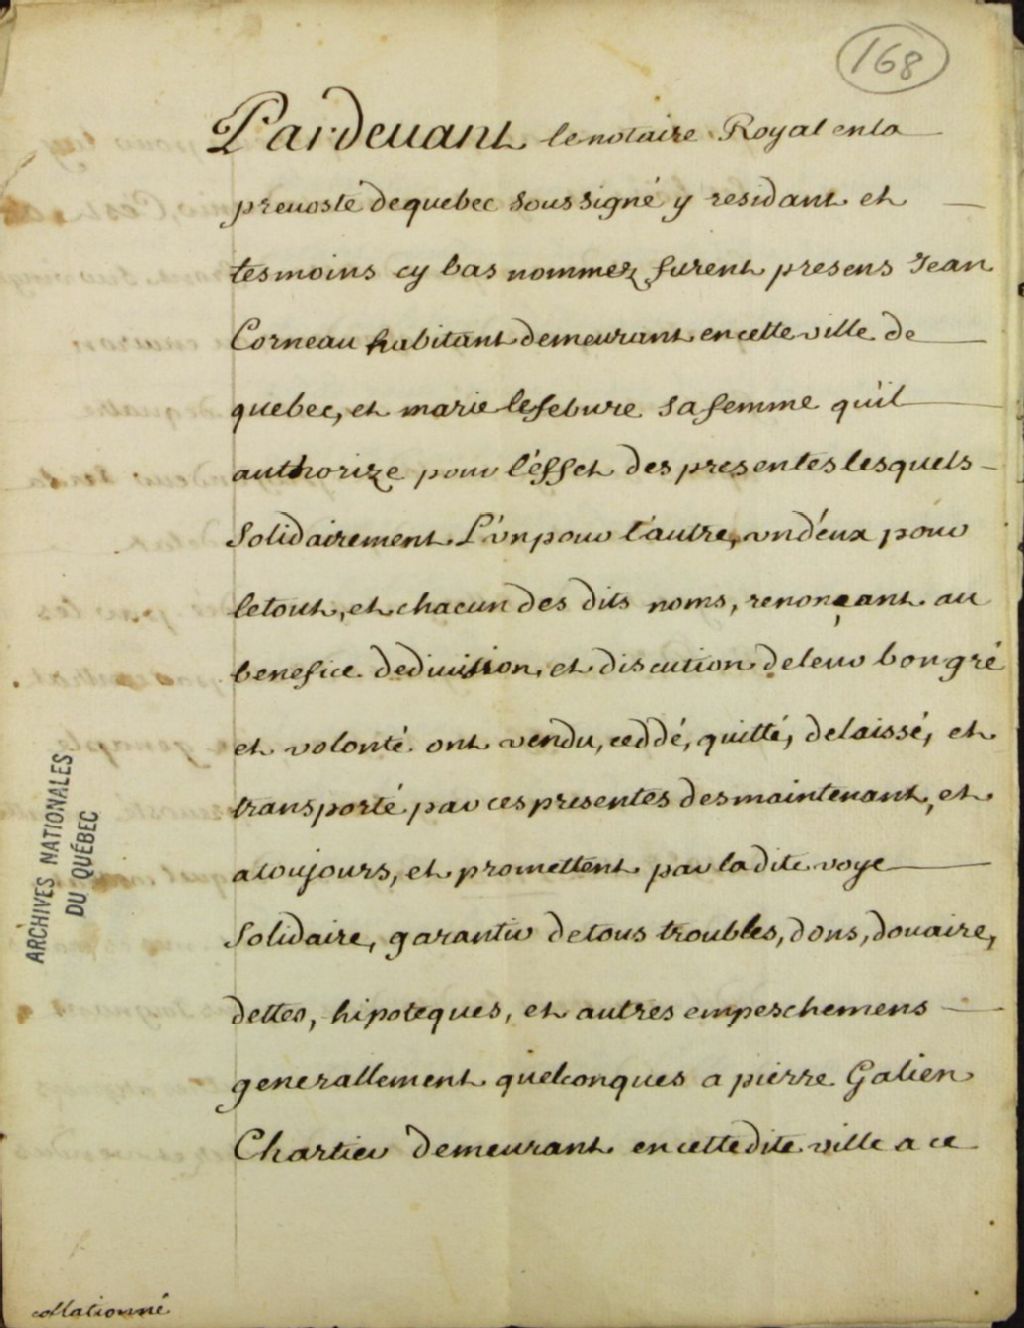 168
Pardeuant le notaire Royal en la
preuosté de quebec soussigné y residant et
tesmoins cy bas nommez furent presens Jean
Corneau habitant demeurant en cette ville de
quebec, et marie lefebure sa femme qu'il
authorize pour l'éffet des presentes lesquels
Solidairement L'vn pour l'autre, vn d'eux pour
le tout, et chacun des dits noms, renonçant au
benefice de diuission, et discution de leur bon gré
et volonté ont vendu, ceddé, quitté, delaissé, et
transporté par ces presentes des maintenant, et
a toujours, et promettent par la dite voye
Solidaire, garantir de tous troubles, dons, douaire,
dettes, hipoteques, et autres empeschemens
generallement quelconques a pierre Galien
Chartier demeurant en cette dite ville a ce
collationné
ARCHIVES NATIONALES
DU QUÉBEC